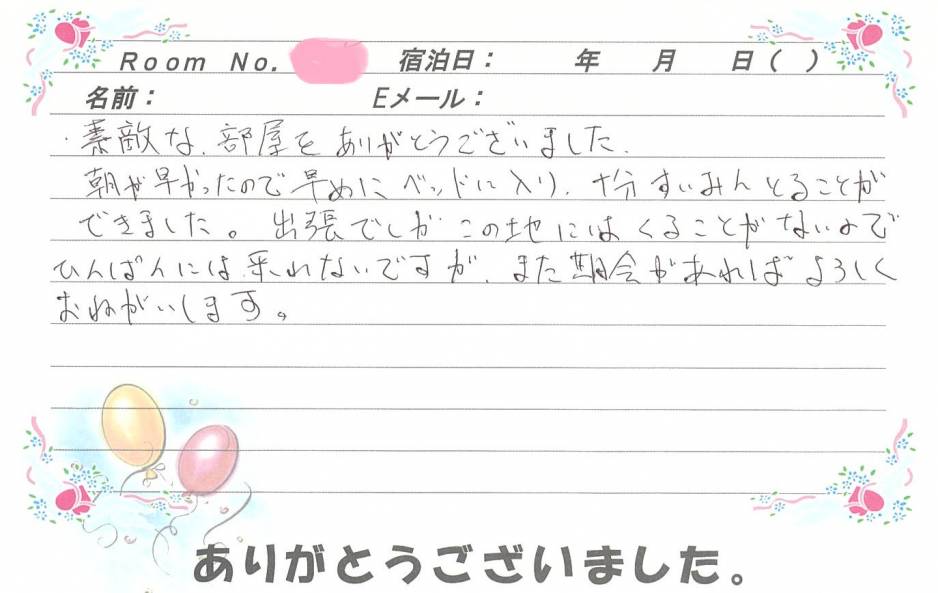 Room No. 宿泊日： 年 月 日（ ）
名前： Eメール：
・素敵な、部屋を ありがとうございました.
朝が早かったので早めに ベッドに入り、十分すいみんとることが
できました。出張でしか この地には くることがないので
ひんぱんには来れないですが、また機会があれば よろしく
おねがいします。
ありがとうございました。